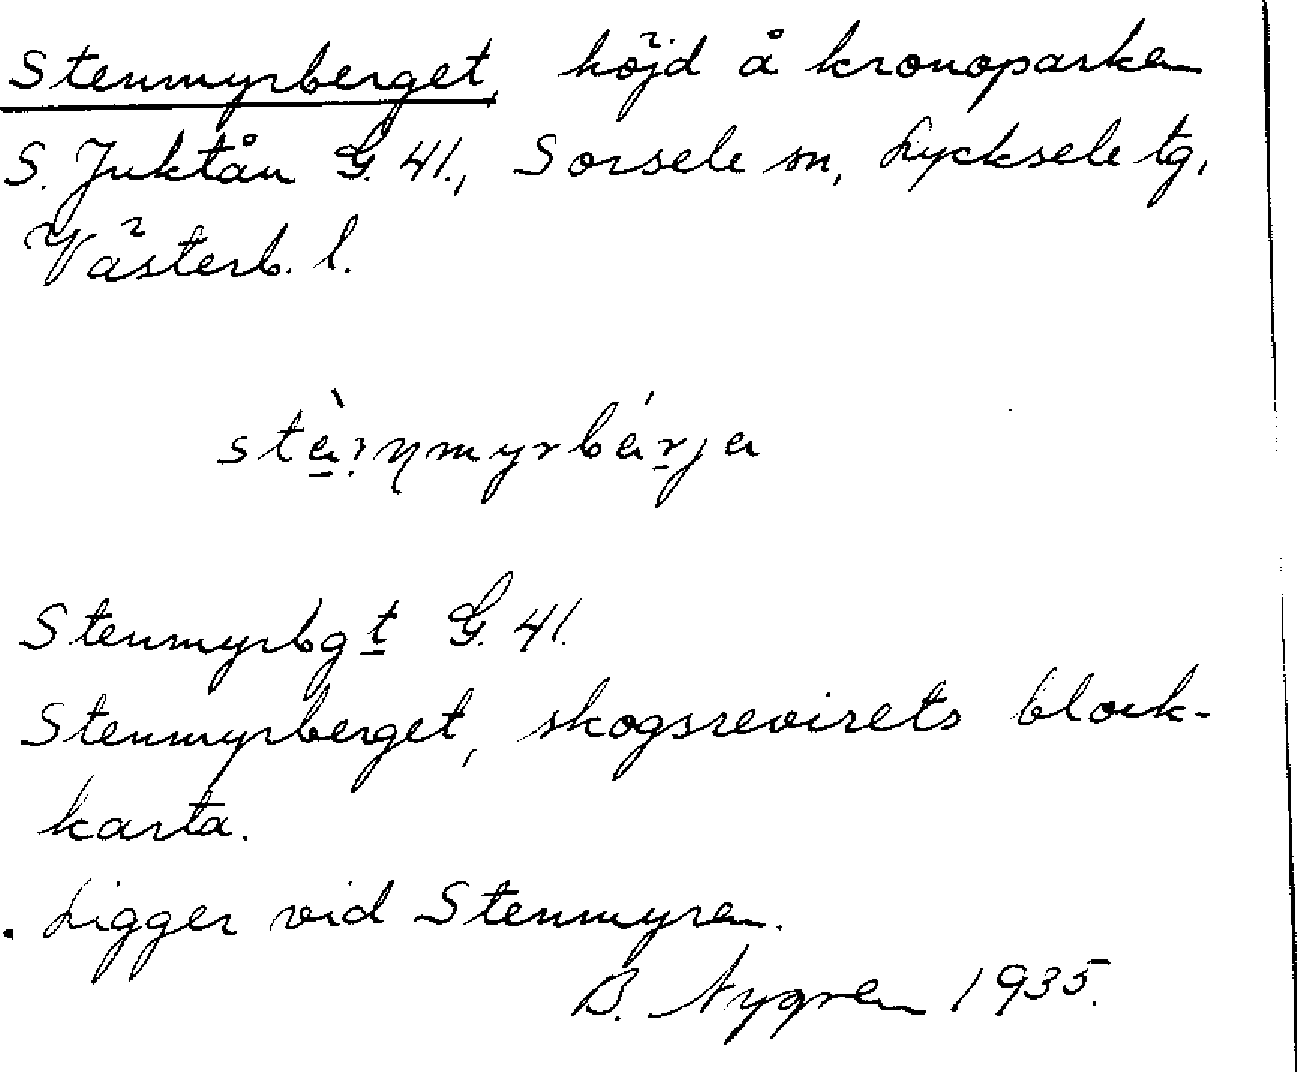 Stenmyrberget, höjd å kronoparken
S. Juktån G. 41., Sorsele sn, Lycksele tg,
Västerb. l.
Stenmyrbgt G. 41.
Stenmyrberget, skogsrevirets block-
karta.
Ligger vid Stenmyren.
B. Nygren 1935.